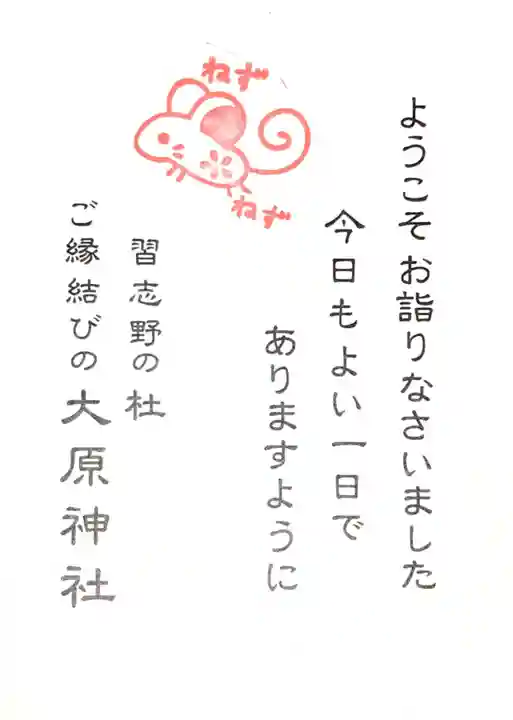 ようこそお詣りなさいました
今日もよい一日で
ありますように
ねず
ねず
習志野の杜
ご縁結びの大原神社